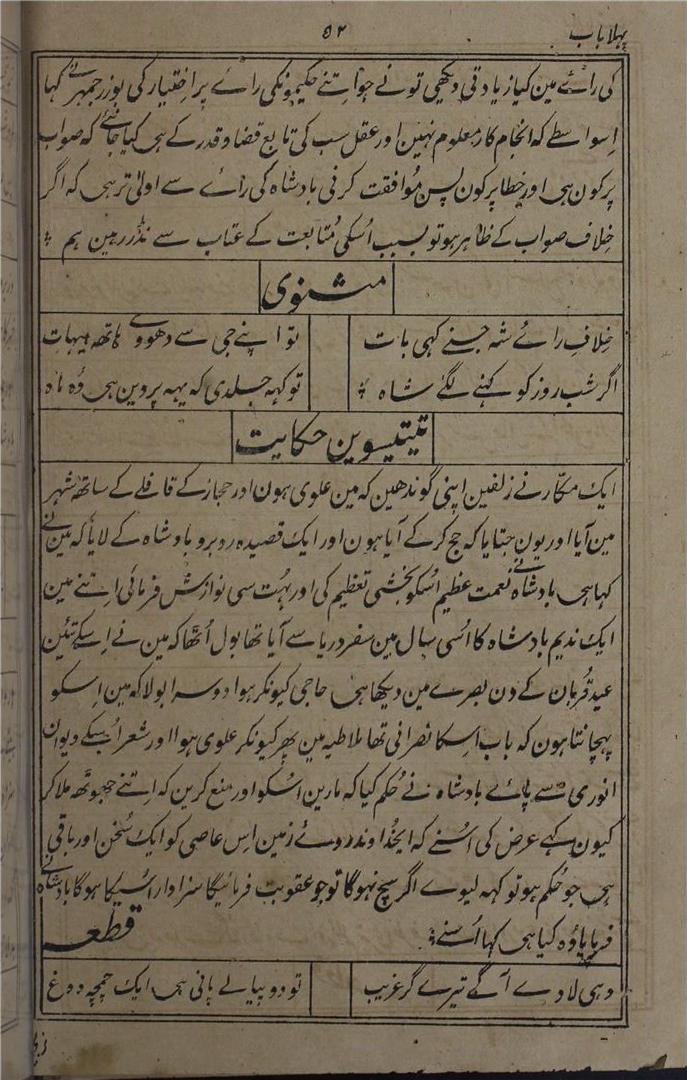 پہلا باب ۵۲
کی رائے مین کیا زیادتی دیکھی تونے جو اتنے حکیمونکی رائے پر اختیار کی بوزرجمہر نے کہا
اسواسطے کہ انجام کار معلوم نہین اور عقل سب کی تابع قضا و قدر کے ہی کیا جانئے کہ صواب
پر کون ہی اور خطا پر کون پس موافقت کرنی بادشاہ کی رائے سے اولیٰ تر ہی کہ اگر
خلاف صواب کے ظاہر ہو تو بسبب اُسکی مُتابعت کے عتاب سے نڈر رہین ہم
مثنوی
خلاف رائے شہ جسنے کہی بات تو اپنے جی سے دھووے ہاتھ ہیہات
اگر شب روز کو کہنے لگے شاہ تو کہہ جلدی کہ یہہ پروین ہی وُہ ماہ
تیتیسوین حکایت
ایک مکّار نے زلفین اپنی گوندھین کہ مین علوی ہون اور حجاز کے قافلے کے ساتھ شہر
مین آیا اور یون جتایا کہ حج کرکے آیا ہون اور ایک قصیدہ روبرو بادشاہ کے لایا کہ مین نے
کہا ہی بادشاہ نے نعمت عظیم اُسکو بخشی تعظیم کی اور بہُت سی نوازش فرمائی اتنے مین
ایک ندیم بادشاہ کا اُسی سال مین سفر دریا سے آیا تھا بول اُٹھا کہ مین نے اسکے تئین
عید قُربان کے دن بصرے مین دیکھا ہی حاجی کیونکر ہوا دوسرا بولا کہ مین اسکو
پہچانتا ہون کہ باپ اسکا نصرانی تھا ملاطیہ مین پھر کیونکر علوی ہوا اور شعر اُسکے دیوان
انوری سے پائے بادشاہ نے حُکم کیا کہ مارین اُسکو اور منع کرین کہ اتنے جھوٹھ ملا کر
کیون کہے عرض کی اُسنے کہ ایخُداوند روئے زمین اس عاصی کو ایک سُخن اور باقی
ہی جو حُکم ہو تو کہہ لیوے اگر سچ نہوگا تو جو عقوبت فرمائیگا سزاوار اُسیکا ہوگا بادشاہ نے
فرمایا وُہ کیا ہی کہا اُسنے قطعہ
دہی لادے آگے تیرے گر غریب تو دو پیالے پانی ہی ایک چمچہ دوغ